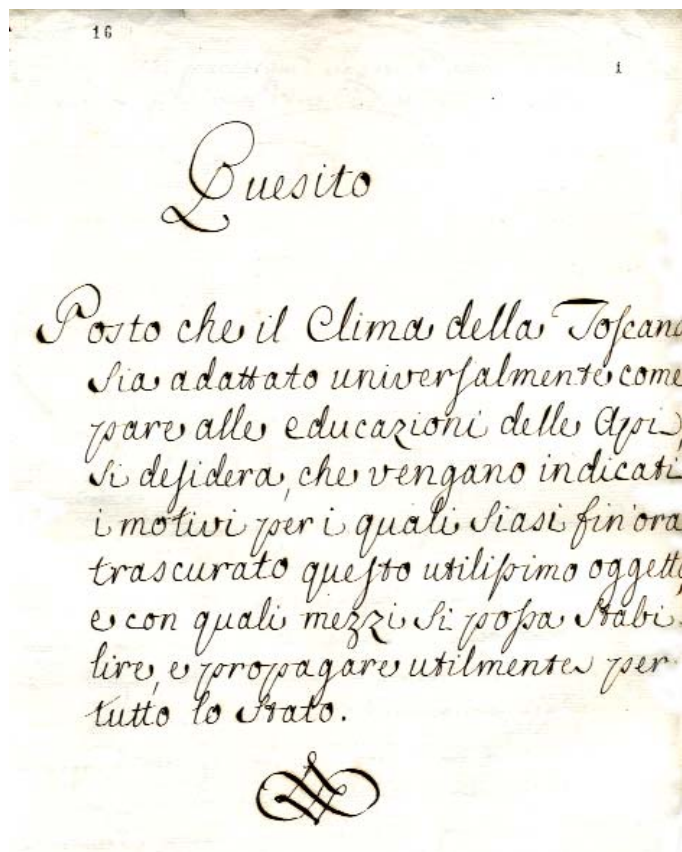 16
1
Quesito
Posto che il Clima della Toscana
sia adattato universalmente come
pare alle educazioni delle Api,
si desidera, che vengano indicati
i motivi per i quali siasi fin'ora
trascurato questo utilissimo oggetto,
e con quali mezzi si possa stabi-
lire, e propagare utilmente per
tutto lo Stato.